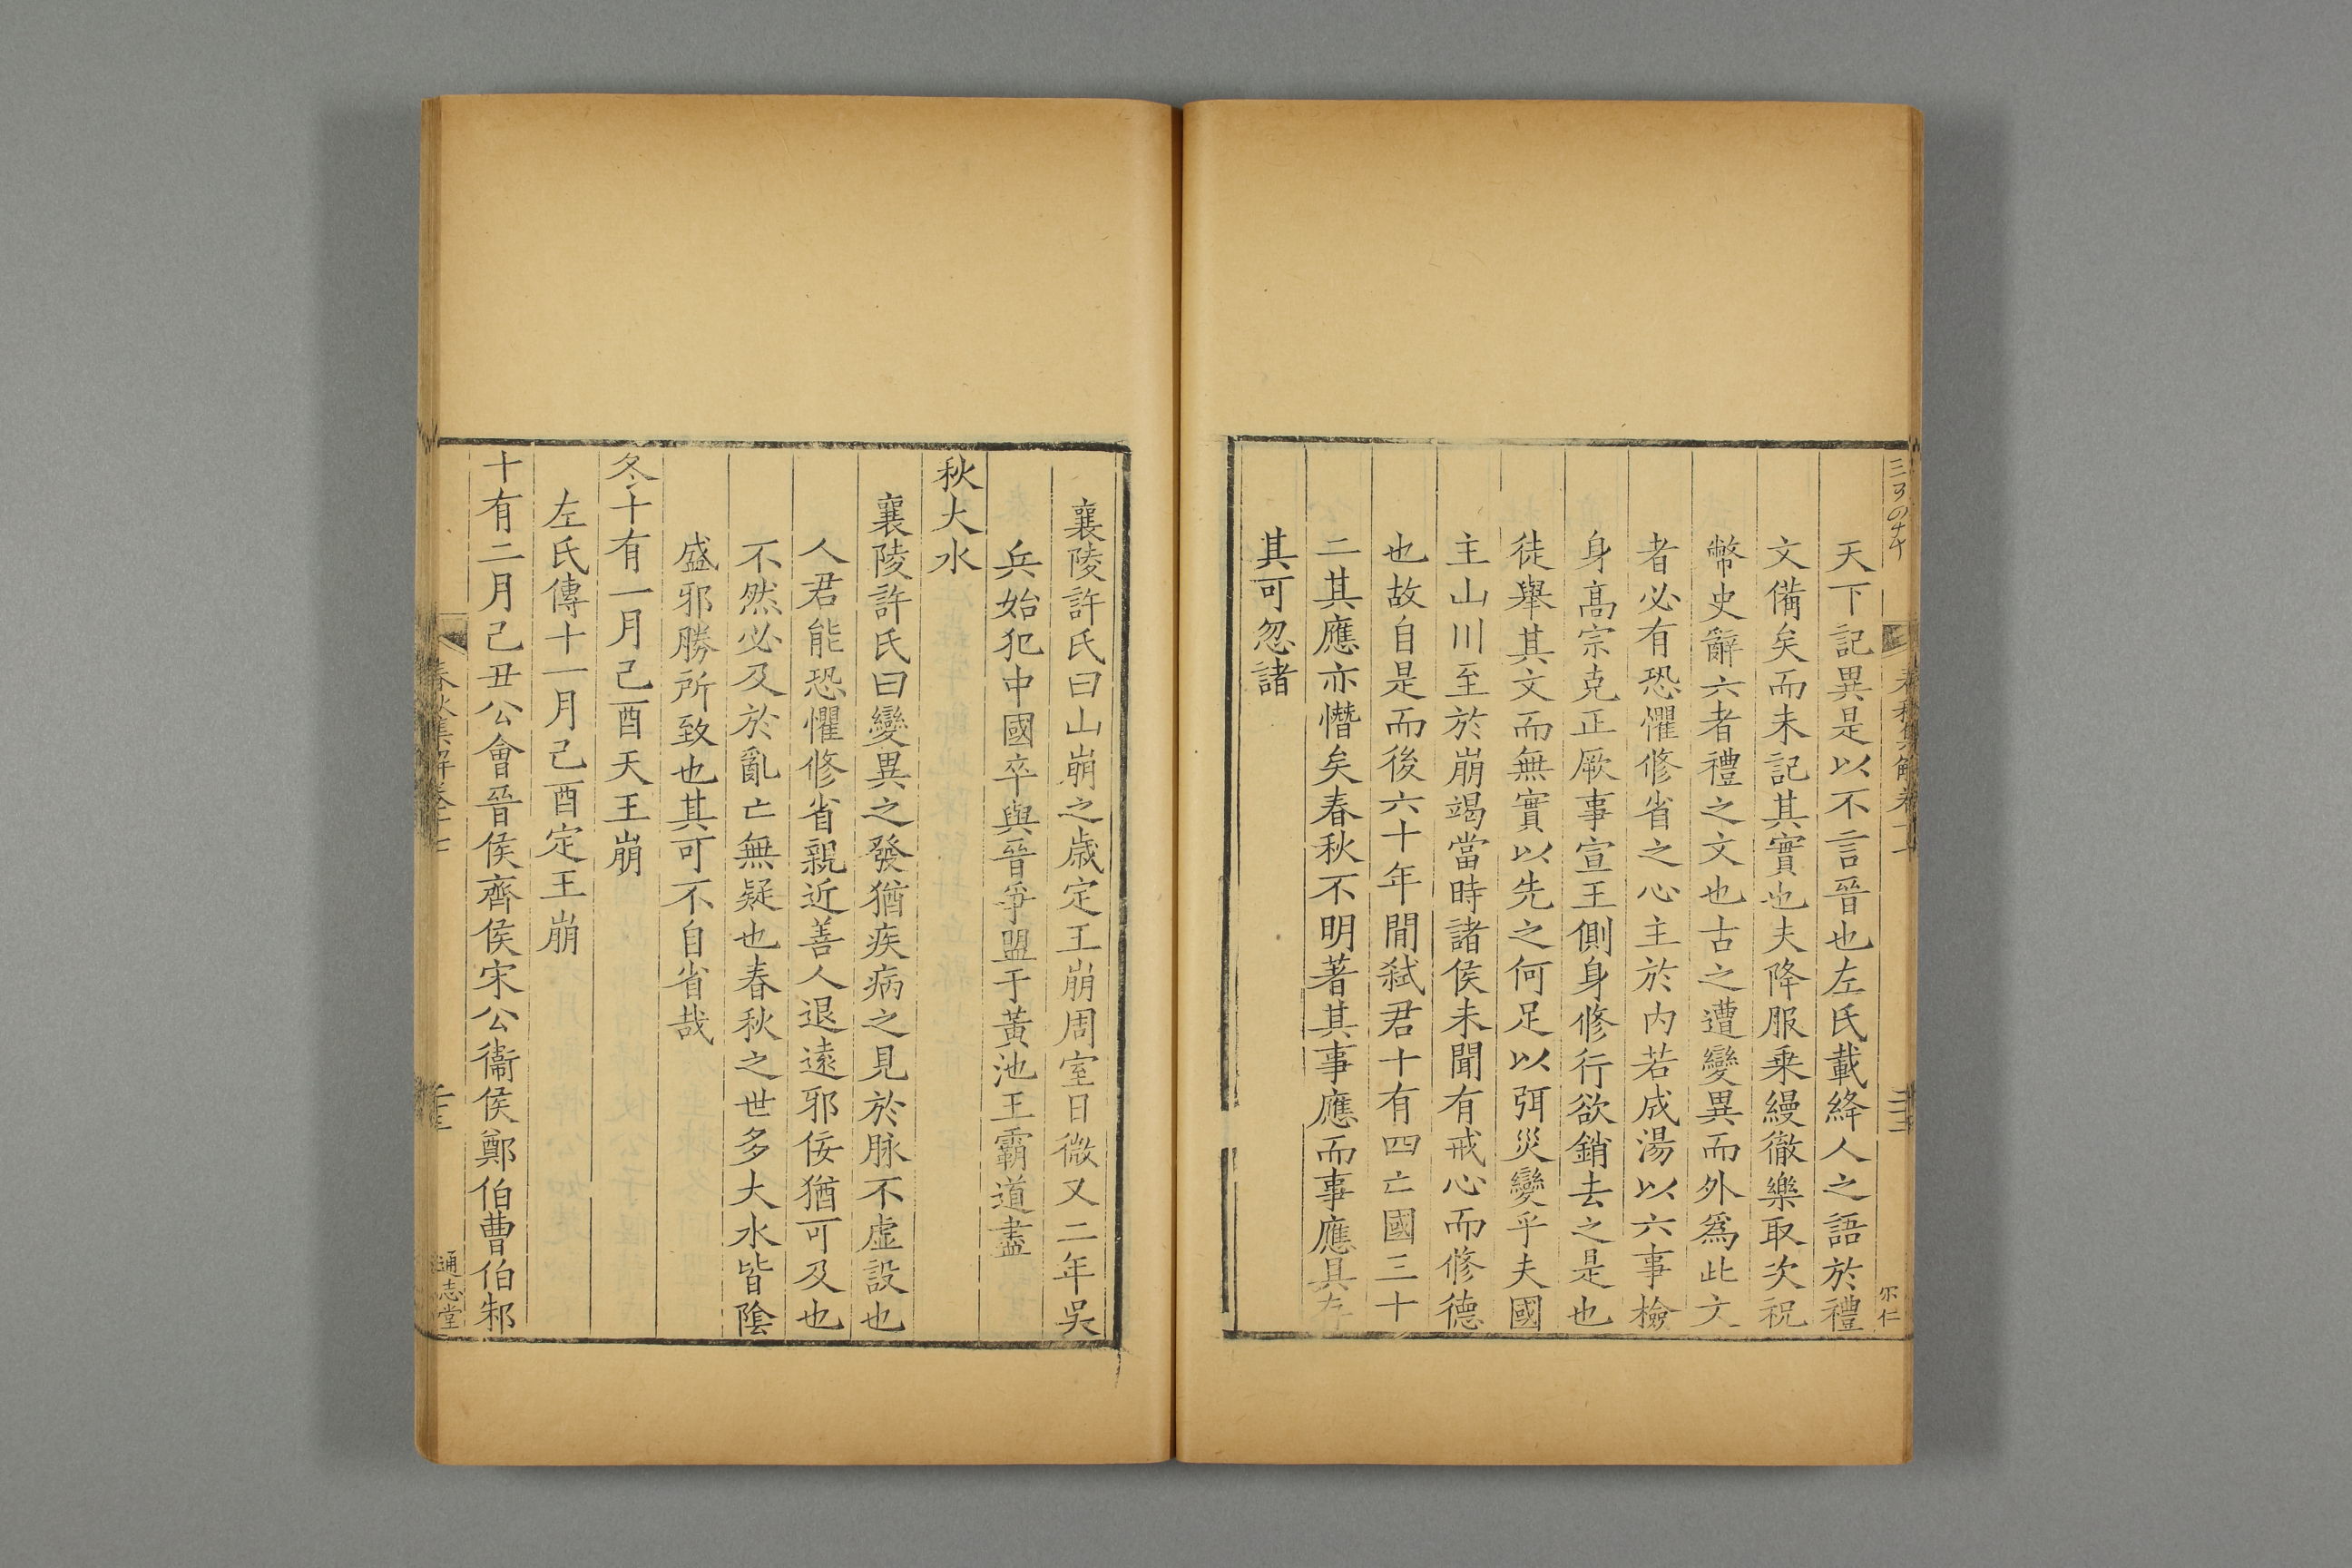 天下記異是以不言晉也左氏載絳人之語於禮
文備矣而未記其實也夫降服乗縵徹樂取次祝
幣史辭六者禮之文也古之遭變異而外爲此文
者必有恐懼修省之心主於内若成湯以六事檢
身高宗克正厥事宣王側身修行欲銷去之是也
徒舉其文而無實以先之何足以弭災變乎夫國
主山川至於崩竭當時諸侯未聞有戒心而修德
也故自是而後六十年閒弑君十有四亡國三十
二其應亦憯矣春秋不明著其事應而事應具存
其可忽諸
尔仁
襄陵許氏曰山崩之歲定王崩周室日微又二年吳
兵始犯中國卒與晉爭盟于黃池王霸道盡
秋大水
襄陵許氏曰變異之發猶疾病之見於脉不虛設也
人君能恐懼修省親近善人退遠邪佞猶可及也
不然必及於亂亡無疑也春秋之世多大水皆陰
盛邪勝所致也其可不自省哉
冬十有一月己酉天王崩
左氏傳十一月己酉定王崩
十有二月己丑公會晉侯齊侯宋公衞侯鄭伯曹伯邾
春秋集解卷十七
通志堂